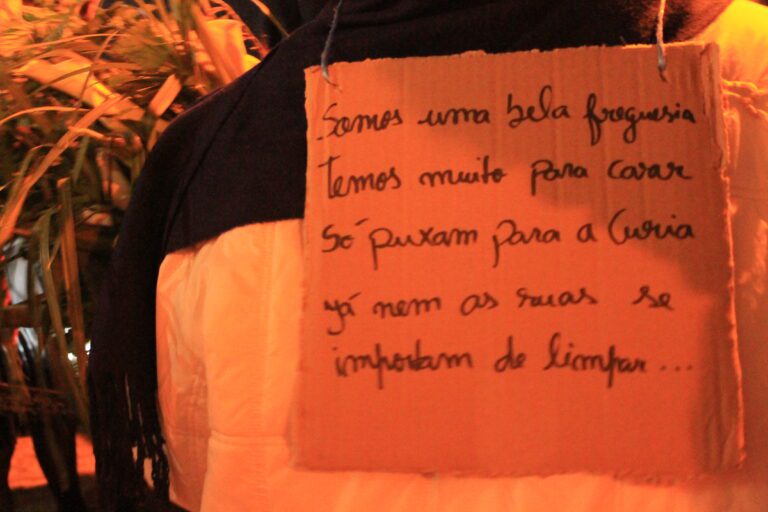 Somos uma bela freguesia
Temos muito para cavar
Só puxam para a Curia
já nem as ruas se
importam de limpar...